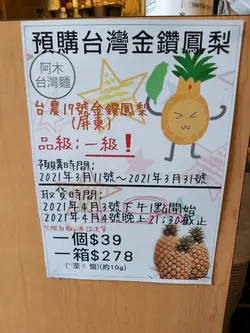 預購台灣金鑽鳳梨
阿木
台灣麵
台農17號金鑽鳳梨
(屏東)
品級:一級!
預購時間:
2021年3月11號~2021年3月31號
取貨時間:
2021年4月3號下午1點開始
2021年4月4號晚上21:30截止
一個$39
一箱$278
個)(約10g)